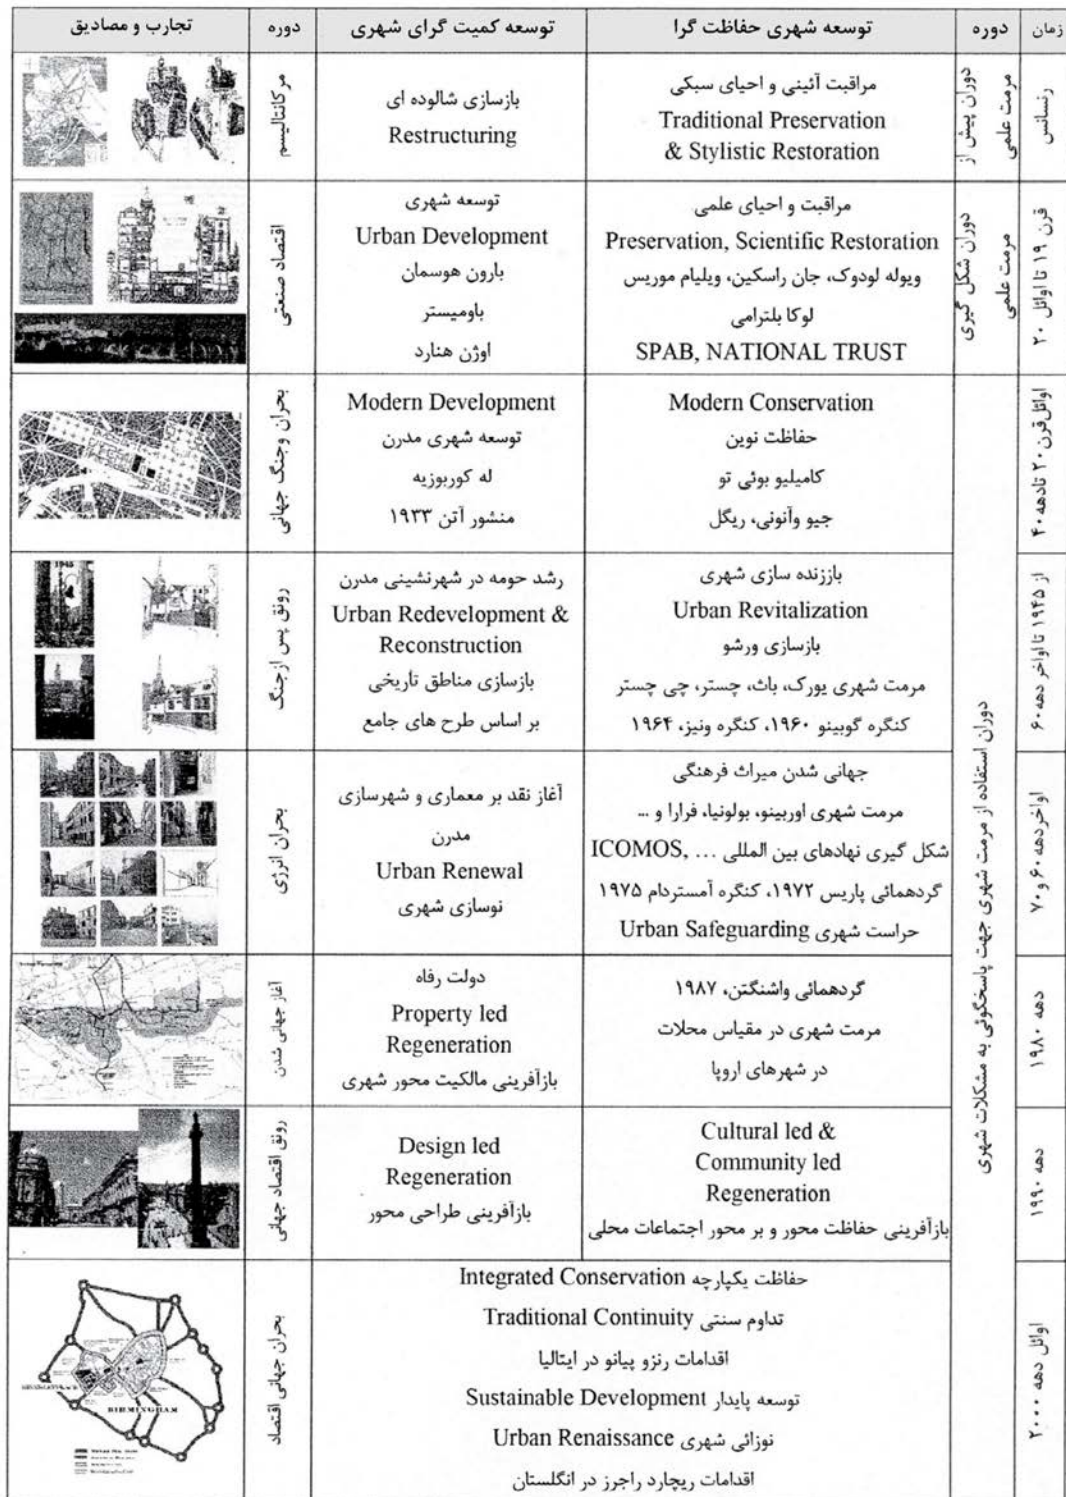 زمان
دوره
توسعه شهری حفاظت گرا
توسعه کمیت گرای شهری
دوره
تجارب و مصادیق
رنسانس
دوران پیش از
مرمت علمی
مراقبت آئینی و احیای سبکی
Traditional Preservation
& Stylistic Restoration
بازسازی شالوده ای
Restructuring
مرکانتالیسم
قرن ۱۹ تا اوائل ۲۰
دوران شکل گیری
مرمت علمی
مراقبت و احیای علمی
Preservation, Scientific Restoration
ویوله لودوک، جان راسکین، ویلیام موریس
لوکا بلترامی
SPAB, NATIONAL TRUST
توسعه شهری
Urban Development
بارون هوسمان
باومیستر
اوژن هنارد
اقتصاد صنعتی
اوائل قرن ۲۰ تا دهه ۴۰
دوران استفاده از مرمت شهری جهت پاسخگوئی به مشکلات شهری
Modern Conservation
حفاظت نوین
کامیلیو بوئی تو
جیو وآنونی، ریگل
Modern Development
توسعه شهری مدرن
له کوربوزیه
منشور آتن ۱۹۳۳
بحران وجنگ جهانی
از ۱۹۴۵ تا اواخر دهه ۶۰
باززنده سازی شهری
Urban Revitalization
بازسازی ورشو
مرمت شهری یورک، باث، چستر، چی چستر
کنگره گوبینو ۱۹۶۰، کنگره ونیز، ۱۹۶۴
رشد حومه در شهرنشینی مدرن
Urban Redevelopment &
Reconstruction
بازسازی مناطق تاریخی
بر اساس طرح های جامع
رونق پس ازجنگ
1945
اواخردهه ۶۰ و ۷۰
جهانی شدن میراث فرهنگی
مرمت شهری اوربینو، بولونیا، فرارا و ...
شکل گیری نهادهای بین المللی ... ,ICOMOS
گردهمائی پاریس ۱۹۷۲، کنگره آمستردام ۱۹۷۵
حراست شهری Urban Safeguarding
آغاز نقد بر معماری و شهرسازی
مدرن
Urban Renewal
نوسازی شهری
بحران انرژی
دهه ۱۹۸۰
گردهمائی واشنگتن، ۱۹۸۷
مرمت شهری در مقیاس محلات
در شهرهای اروپا
دولت رفاه
Property led
Regeneration
بازآفرینی مالکیت محور شهری
آغاز جهانی شدن
دهه ۱۹۹۰
Cultural led &
Community led
Regeneration
بازآفرینی حفاظت محور و بر محور اجتماعات محلی
Design led
Regeneration
بازآفرینی طراحی محور
رونق اقتصاد جهانی
اوائل دهه ۲۰۰۰
حفاظت یکپارچه Integrated Conservation
تداوم سنتی Traditional Continuity
اقدامات رنزو پیانو در ایتالیا
توسعه پایدار Sustainable Development
نوزائی شهری Urban Renaissance
اقدامات ریچارد راجرز در انگلستان
بحران جهانی اقتصاد
BIRMINGHAM